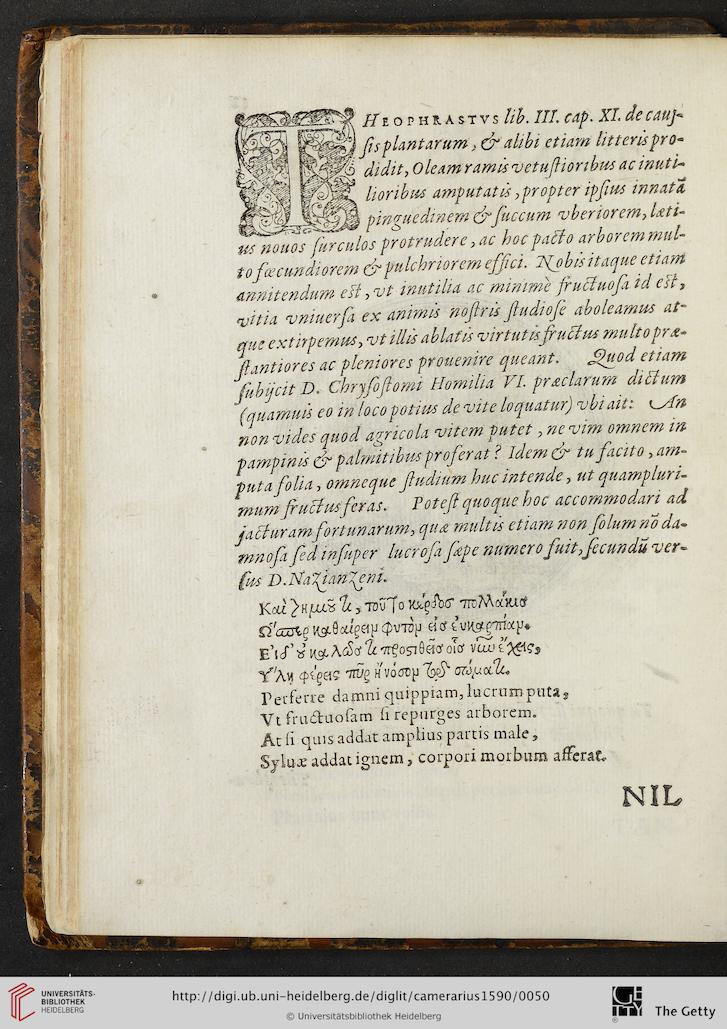 THEOPHRASTVS lib. III. cap. XI. de cauſ-
ſis plantarum, & alibi etiam litteris pro-
didit, Oleam ramis vetuſtioribus ac inuti-
lioribus amputatis, propter ipſius innatā
pinguedinem & ſuccum vberiorem, læti-
us nouos ſurculos protrudere, ac hoc pacto arborem mul-
to fœcundiorem & pulchriorem effici. Nobis itaque etiam
annitendum eſt, vt inutilia ac minimè fructuoſa id eſt,
vitia vniuerſa ex animis noſtris ſtudioſe aboleamus at-
que extirpemus, vt illis ablatis virtutis fructus multo præ-
ſtantiores ac pleniores prouenire queant. Quod etiam
ſubijcit D. Chryſoſtomi Homilia VI. præclarum dictum
(quamuis eo in loco potius de vite loquatur) vbi ait: An
non vides quod agricola vitem putet, ne vim omnem in
pampinis & palmitibus proferat? Idem & tu facito, am-
puta folia, omneque ſtudium huc intende, ut quampluri-
mum fructus feras. Poteſt quoque hoc accommodari ad
jacturam fortunarum, quæ multis etiam non ſolum nō da-
mnoſa ſed inſuper lucroſa ſæpe numero fuit, ſecundū ver-
ſus D. Nazianzeni.
Καὶ ζημιοῦ τι, τοῦτο κέρδος πολλάκις
Ὥσπερ καθαίρειν φυτὸν εἰς εὐκαρπίαν.
Εἰ δ' οὐ καλῶς τι προστιθεῖς οἷς νῦν ἔχεις,
Ὕλῃ φέρεις πῦρ ἢ νόσον τοῦ σώματι.
Perferre damni quippiam, lucrum puta,
Vt fructuoſam ſi repurges arborem.
At ſi quis addat amplius partis male,
Syluæ addat ignem, corpori morbum afferat.
NIL
UNIVERSITÄTS-
BIBLIOTHEK
HEIDELBERG
http://digi.ub.uni-heidelberg.de/diglit/camerarius1590/0050
© Universitätsbibliothek Heidelberg
The Getty